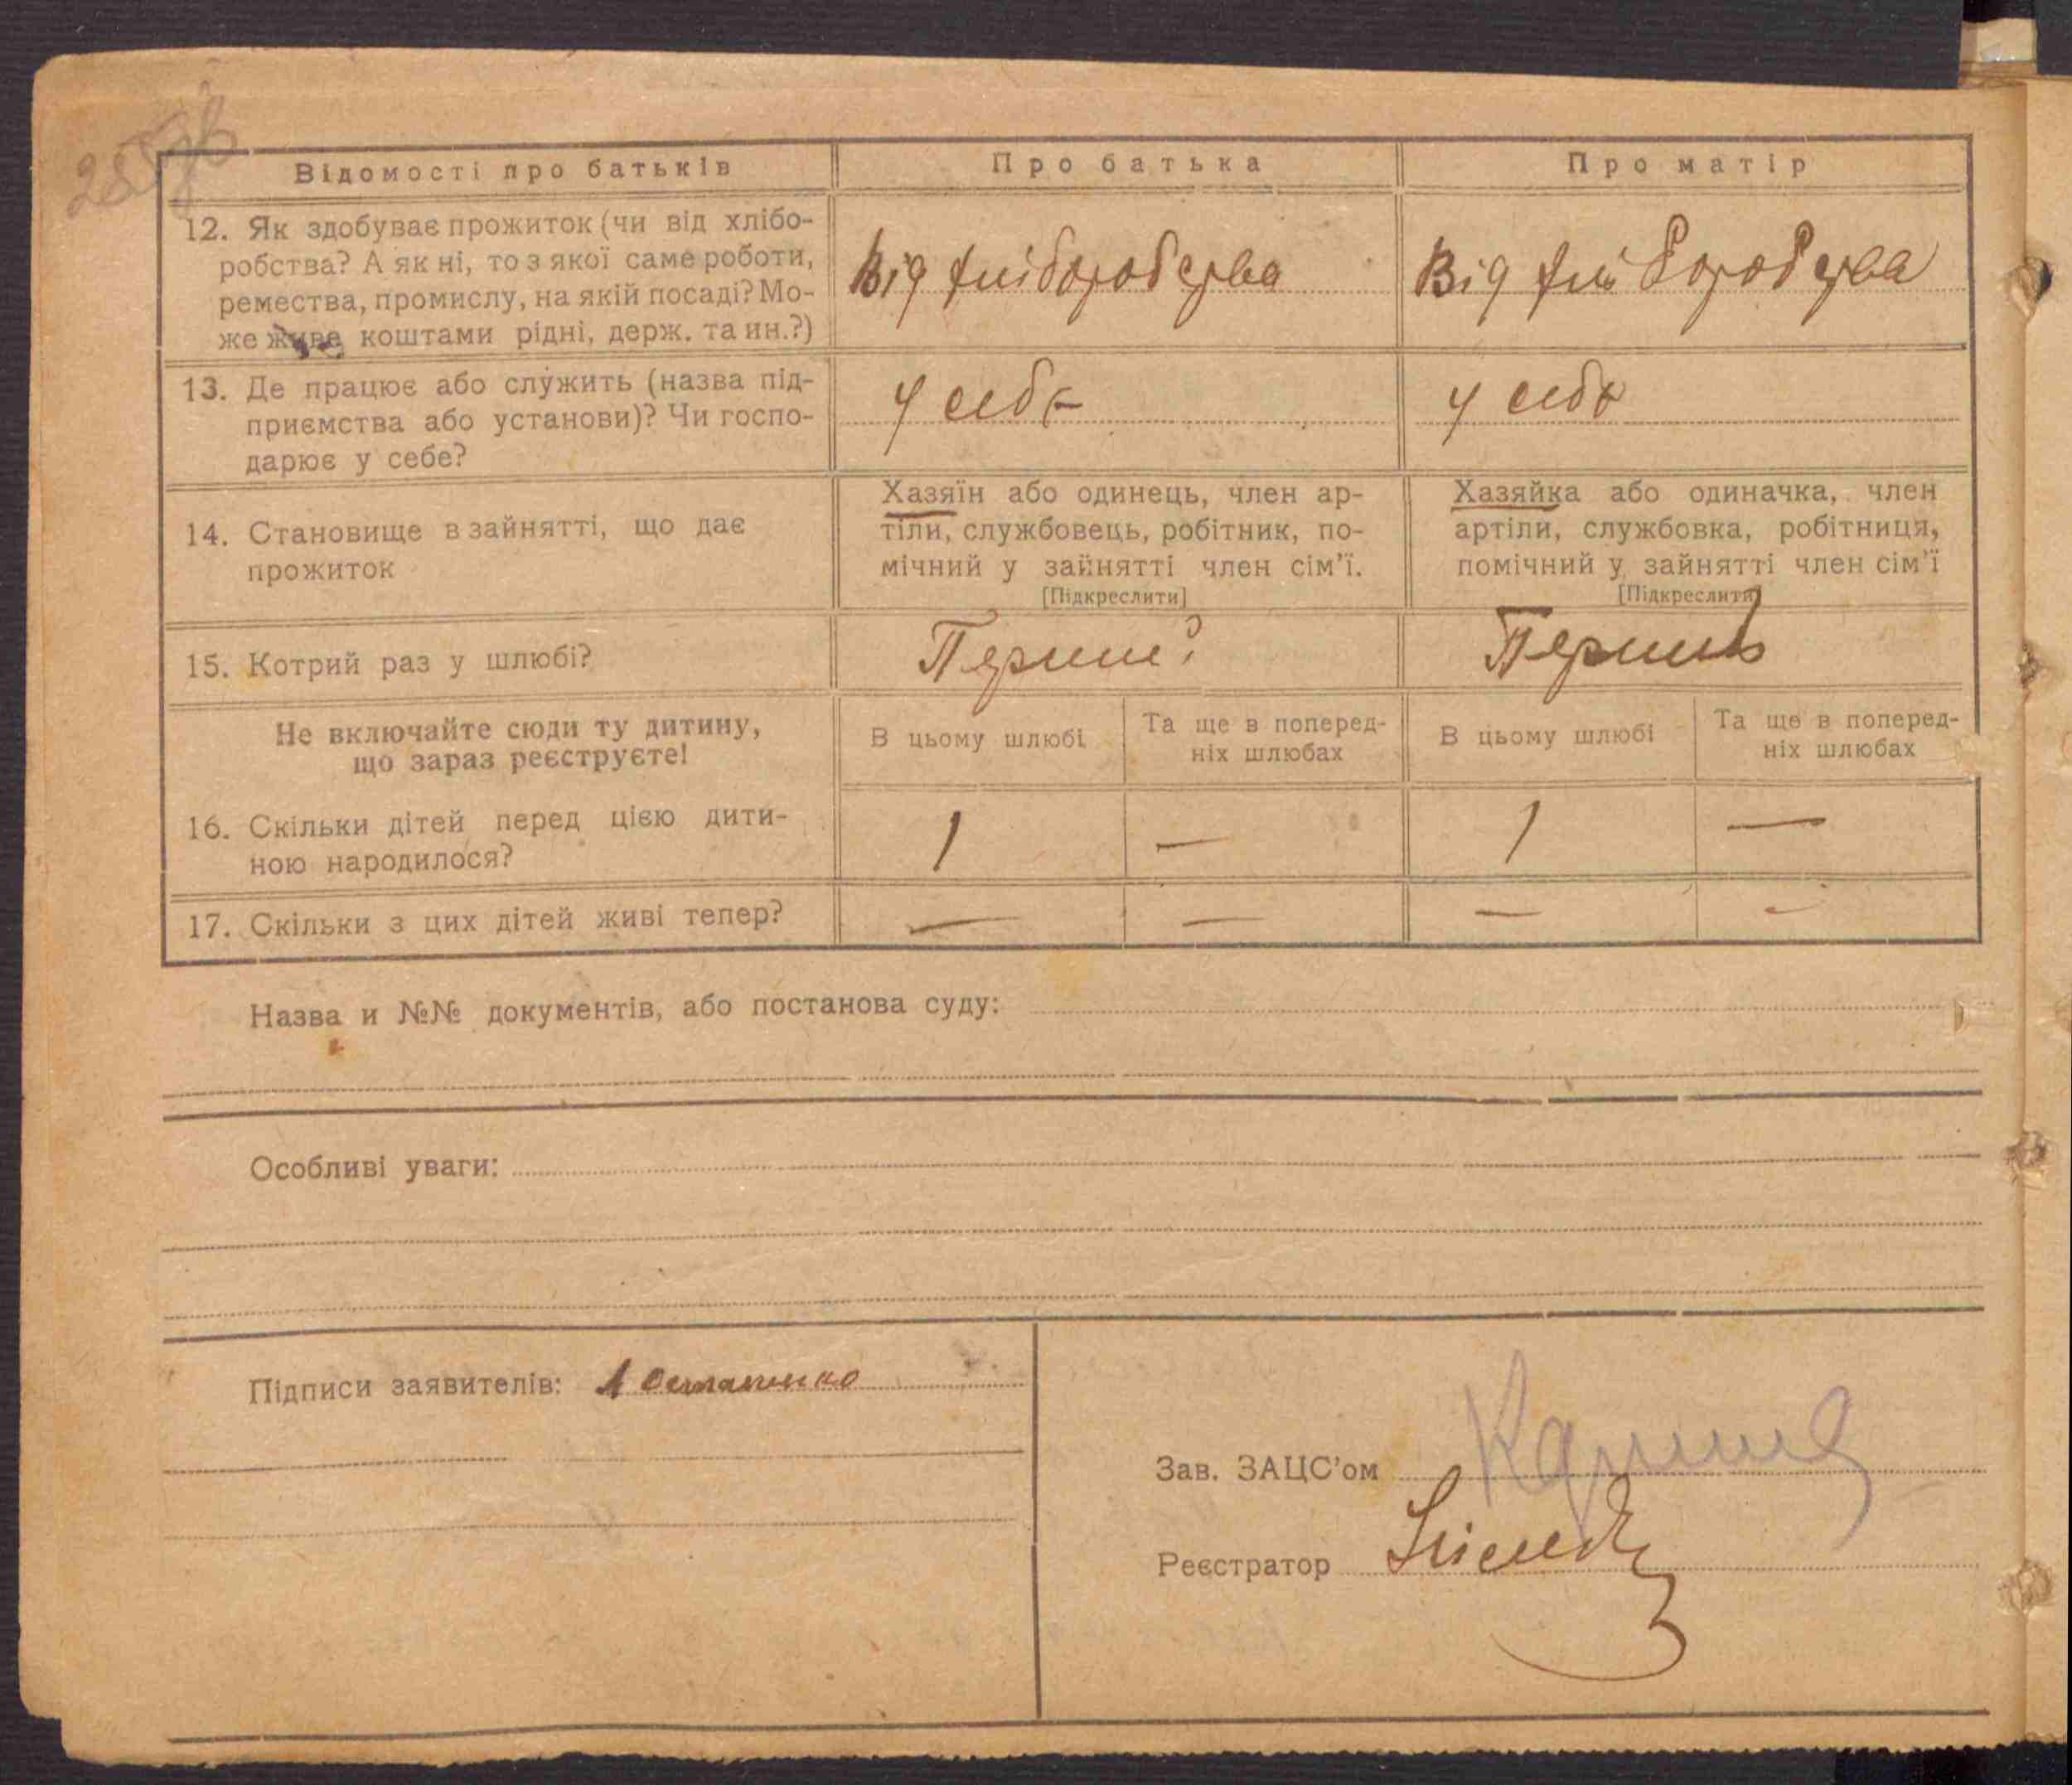 Відомості про батьків
Про батька
Про матір
12. Як здобуває прожиток (чи від хлібо-
робства? А як ні, то з якої саме роботи,
ремества, промислу, на якій посаді? Мо-
же живе коштами рідні, держ. та ин.?)
Від хліборобства
Від хліборобства
13. Де працює або служить (назва під-
приємства або установи)? Чи госпо-
дарює у себе?
у себе
у себе
14. Становище в зайнятті, що дає
прожиток
Хазяїн або одинець, член ар-
тіли, службовець, робітник, по-
мічний у зайнятті член сім'ї.
[Підкреслити]
Хазяйка або одиначка, член
артіли, службовка, робітниця,
помічний у зайнятті член сім'ї
[Підкреслити]
15. Котрий раз у шлюбі?
Перший
Перший
Не включайте сюди ту дитину,
що зараз реєструєте!
В цьому шлюбі
Та ще в поперед-
ніх шлюбах
В цьому шлюбі
Та ще в поперед-
ніх шлюбах
16. Скільки дітей перед цією дити-
ною народилося?
1
—
1
—
17. Скільки з цих дітей живі тепер?
—
—
—
—
Назва и №№ документів, або постанова суду:
Особливі уваги:
Підписи заявителів: Остапенко
Зав. ЗАЦС'ом
Реєстратор